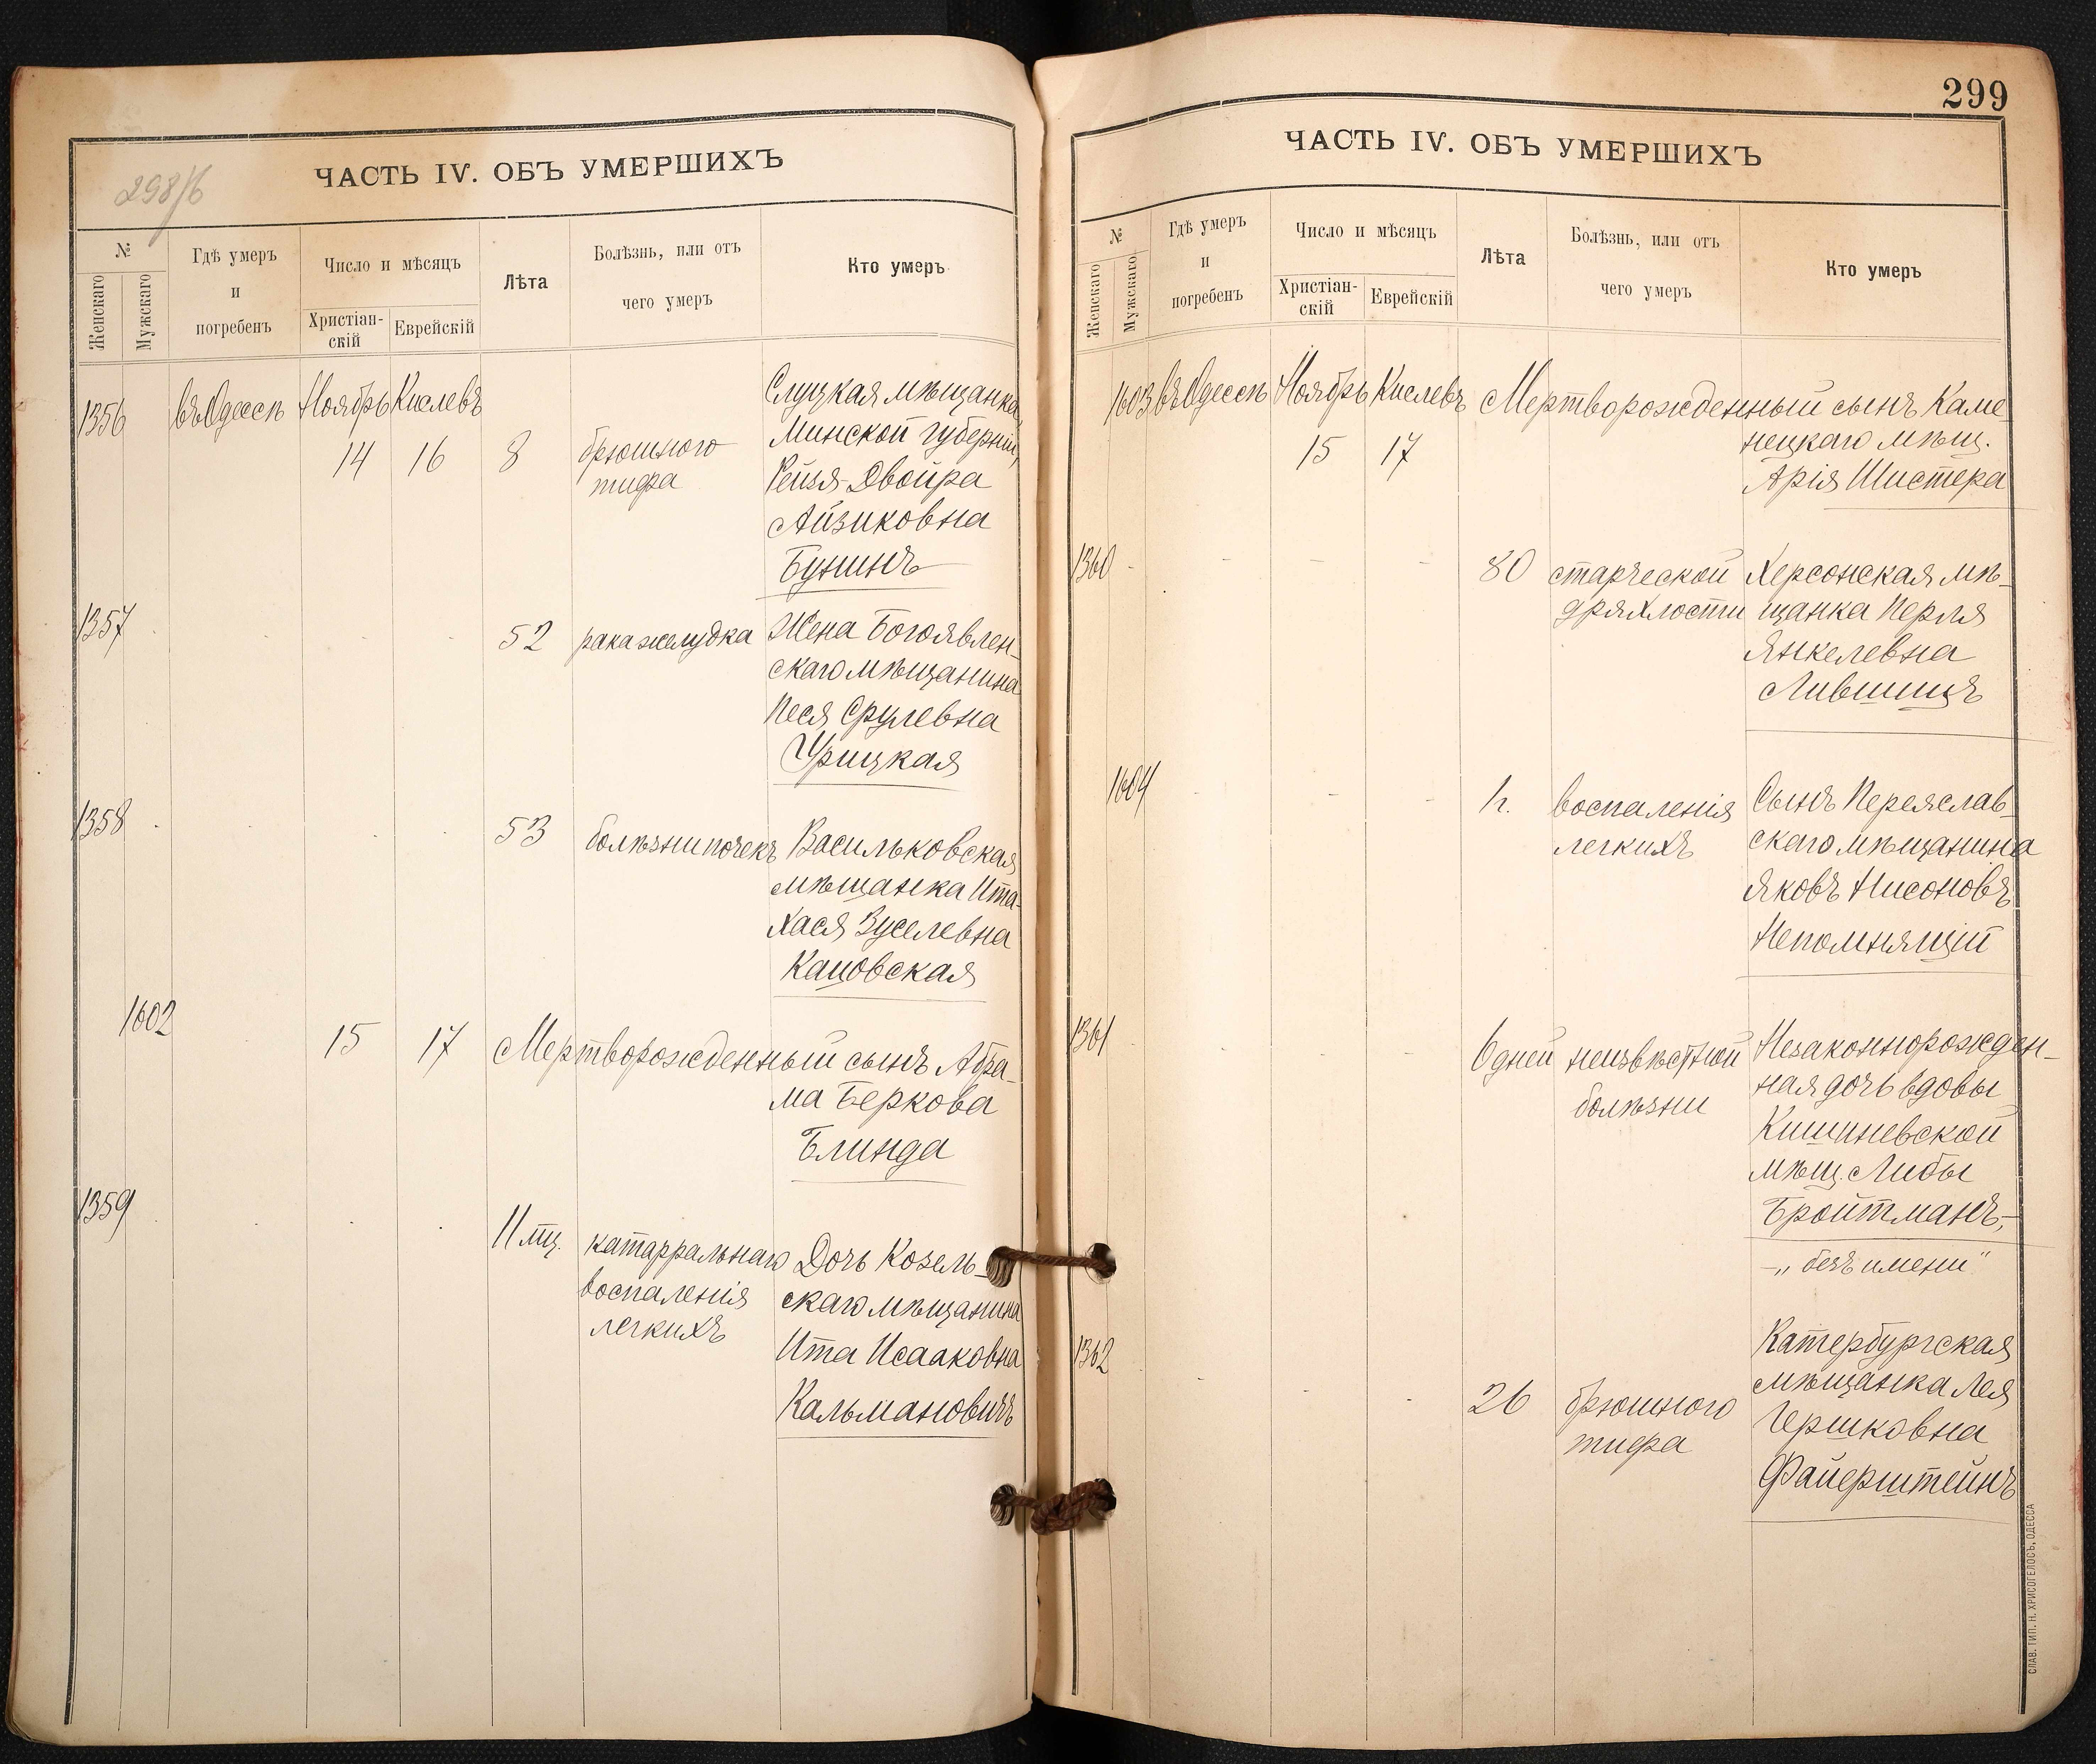 298/б
ЧАСТЬ IV. ОБЪ УМЕРШИХЪ
№
Женскаго
Мужскаго
Гдѣ умеръ
и
погребенъ
Число и мѣсяцъ
Христіан-
скій
Еврейскій
Лѣта
Болѣзнь, или отъ
чего умеръ
Кто умеръ
1356 въ Одессѣ Ноябрь Кислевъ
14 16 8 брюшного
тифа
Слуцкая мѣщанка
Минской губерніи,
Рейзя-Двойра
Айзиковна
Бунинъ
1357 52 рака желудка Жена Богоявлен-
скаго мѣщанина
Песя Срулевна
Урицкая
1358 53 болѣзни почекъ Васильковская
мѣщанка Ита-
Хася Зуселевна
Кацовская
1602 15 17 Мертворожденный сынъ Абра-
ма Беркова
Блинда
1359 11 мц. катарральнаго
воспаленія
легкихъ
Дочь Козель-
скаго мѣщанина
Ита Исааковна
Кальмановичъ
299
ЧАСТЬ IV. ОБЪ УМЕРШИХЪ
№
Женскаго
Мужскаго
Гдѣ умеръ
и
погребенъ
Число и мѣсяцъ
Христіан-
скій
Еврейскій
Лѣта
Болѣзнь, или отъ
чего умеръ
Кто умеръ
1603 въ Одессѣ Ноябрь Кислевъ Мертворожденный сынъ Каме
15 17 нецкаго мѣщ.
Арія Шистера
1360 80 старческой
дряхлости
Херсонская мѣ-
щанка Перля
Янкелевна
Лившицъ
1604 1 г. воспаленія
легкихъ
Сынъ Переяслав-
скаго мѣщанина
Яковъ Нисоновъ
Непомнящій
1361 6 дней неизвѣстной
болѣзни
Незаконнорожден-
ная дочь вдовы
Кишиневской
мѣщ. Либы
Бройтманъ,-
-„безъ имени"
1362 26 брюшного
тифа
Катербургская
мѣщанка Лея
Гершковна
Файерштейнъ
СЛАВ. ТИП. Н. ХРИСОГЕЛОСЪ, ОДЕССА